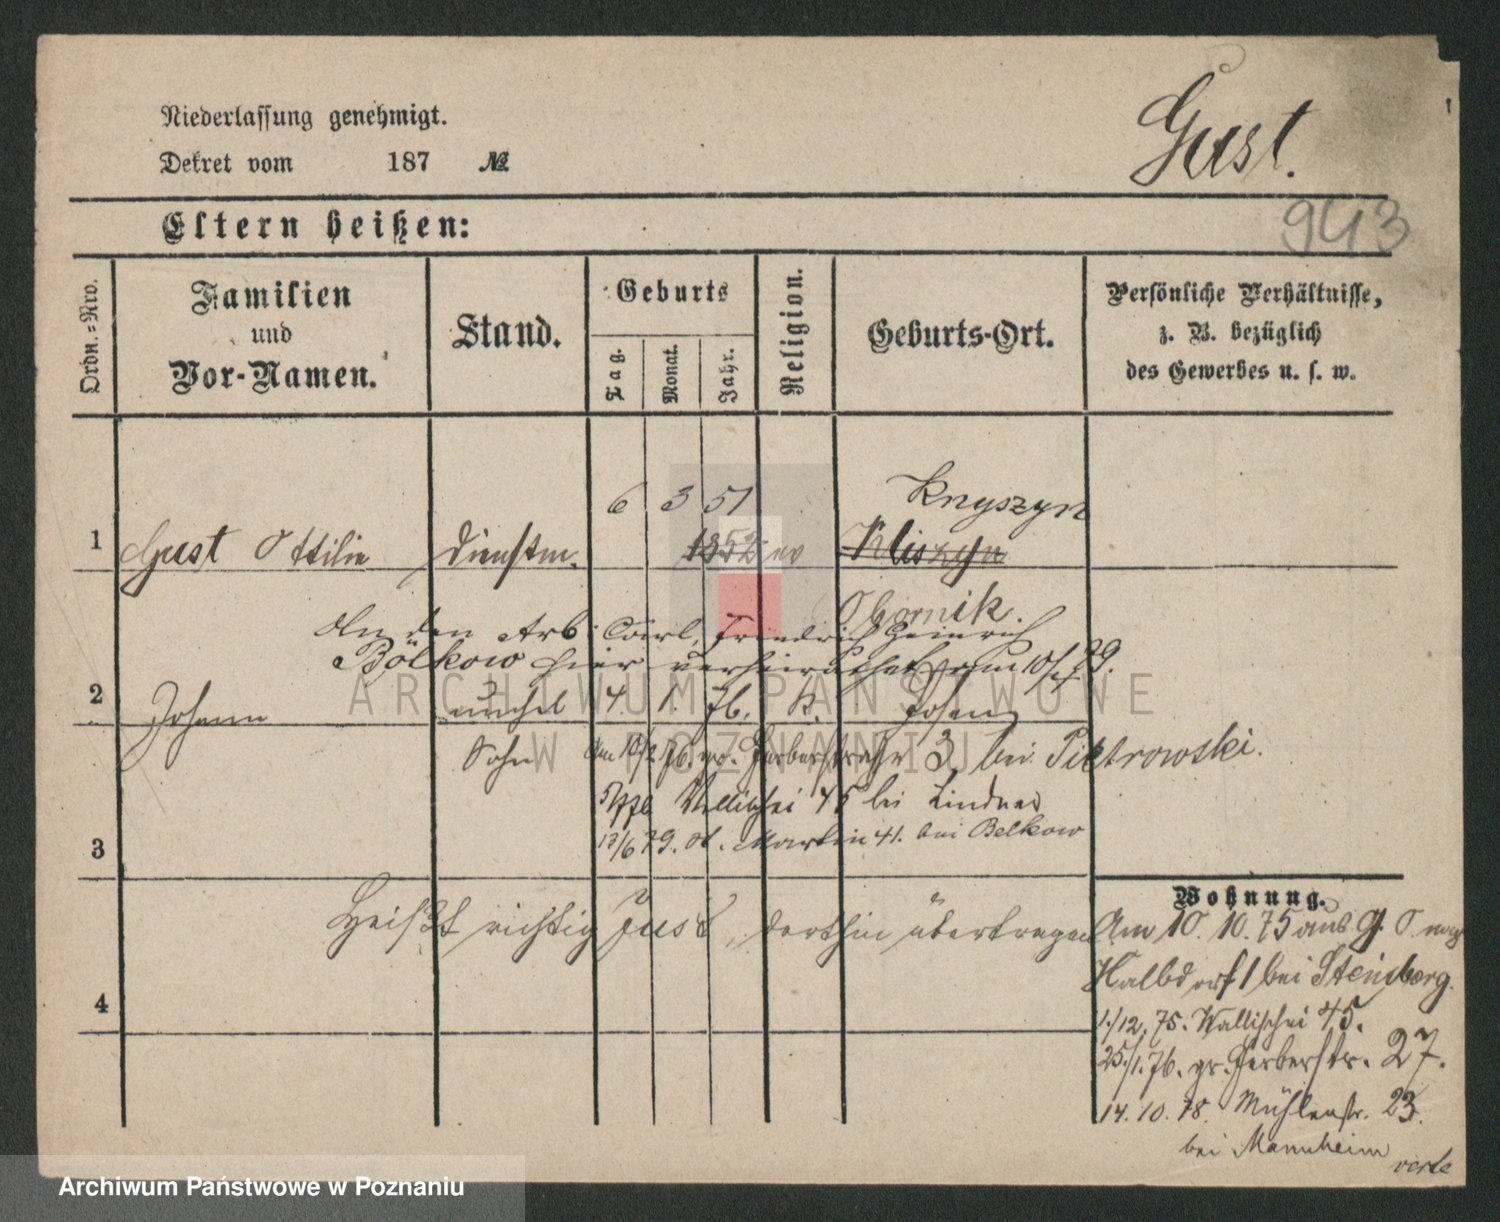 Niederlassung genehmigt.
Dekret vom 187 №
Gust.
943
Eltern heißen:
Ordn.-Nro.
Familien
und
Vor-Namen.
Stand.
Geburts
Tag.
Monat.
Jahr.
Religion.
Geburts-Ort.
Persönliche Verhältnisse,
z. B. bezüglich
des Gewerbes u. s. w.
6 3 51 Knyszyn
1 Gust Ottilie Dienstm. 1852 ev Kliszyn
Obornik.
An den Arb. Carl, Friedrich Heinrich
Bölkow hier verheirathet vom 10/5 79.
2 Johann unehel 4. 1. 76. k. Posen
Sohn Am 10/2 76. gr. Gerberstraße 3, bei Pietrowski.
Wallischei 45 bei Lindner
13/6 79. St. Martin 41. bei Belkow
3
Heißt richtig Just, dorthin übertragen
4
Wohnung.
Am 10. 10. 75 aus
Halbdorf 1 bei Steinberg.
1./12. 75. Wallischei 45.
25./1. 76. gr. Gerberstr. 27.
14. 10. 78. Mühlenstr. 23.
bei Mannheim
verte
ARCHIWUM PAŃSTWOWE
W POZNANIU
Archiwum Państwowe w Poznaniu